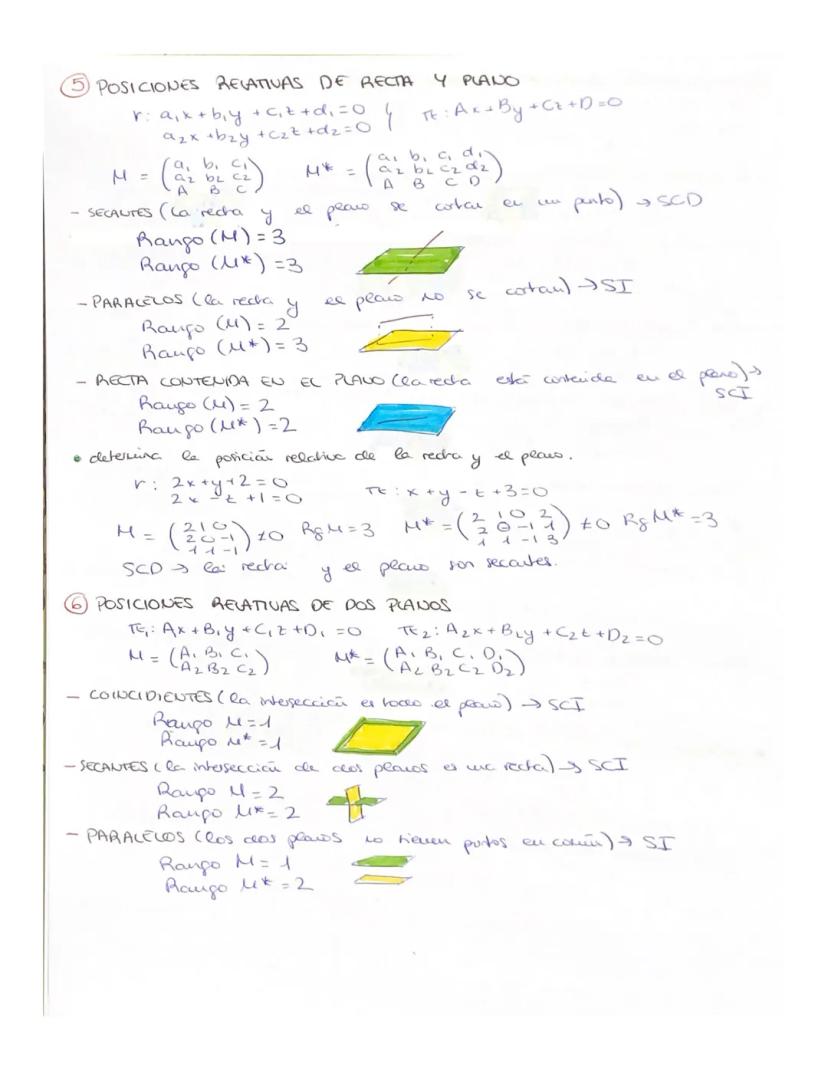 ⑤ POSICIONES RELATIVAS DE RECTA Y PLANO
r: a₁x + b₁y + c₁z + d₁ = 0
a₂x + b₂y + c₂z + d₂ = 0 } π: Ax + By + Cz + D = 0
M = (a₁ b₁ c₁ / a₂ b₂ c₂ / A B C) M* = (a₁ b₁ c₁ d₁ / a₂ b₂ c₂ d₂ / A B C D)
- SECANTES (La recta y el plano se cortan en un punto) → SCD
Rango (M) = 3
Rango (M*) = 3
- PARALELOS (la recta y el plano no se cortan) → SI
Rango (M) = 2
Rango (M*) = 3
- RECTA CONTENIDA EN EL PLANO (la recta está contenida en el plano) → SCI
Rango (M) = 2
Rango (M*) = 2
• determina la posición relativa de la recta y el plano.
r: 2x + y + 2 = 0
2x - z + 1 = 0 π: x + y - z + 3 = 0
M = (2 1 0 / 2 0 -1 / 1 1 -1) ≠ 0 Rg M = 3 M* = (2 1 0 2 / 2 0 -1 1 / 1 1 -1 3) ≠ 0 Rg M* = 3
SCD → la recta y el plano son secantes.
⑥ POSICIONES RELATIVAS DE DOS PLANOS
π₁: Ax + B₁y + C₁z + D₁ = 0 π₂: A₂x + B₂y + C₂z + D₂ = 0
M = (A₁ B₁ C₁ / A₂ B₂ C₂) M* = (A₁ B₁ C₁ D₁ / A₂ B₂ C₂ D₂)
- COINCIDIENTES (la intersección es todo el plano) → SCI
Rango M = 1
Rango M* = 1
- SECANTES (la intersección de dos planos es una recta) → SCI
Rango M = 2
Rango M* = 2
- PARALELOS (los dos planos no tienen puntos en común) → SI
Rango M = 1
Rango M* = 2